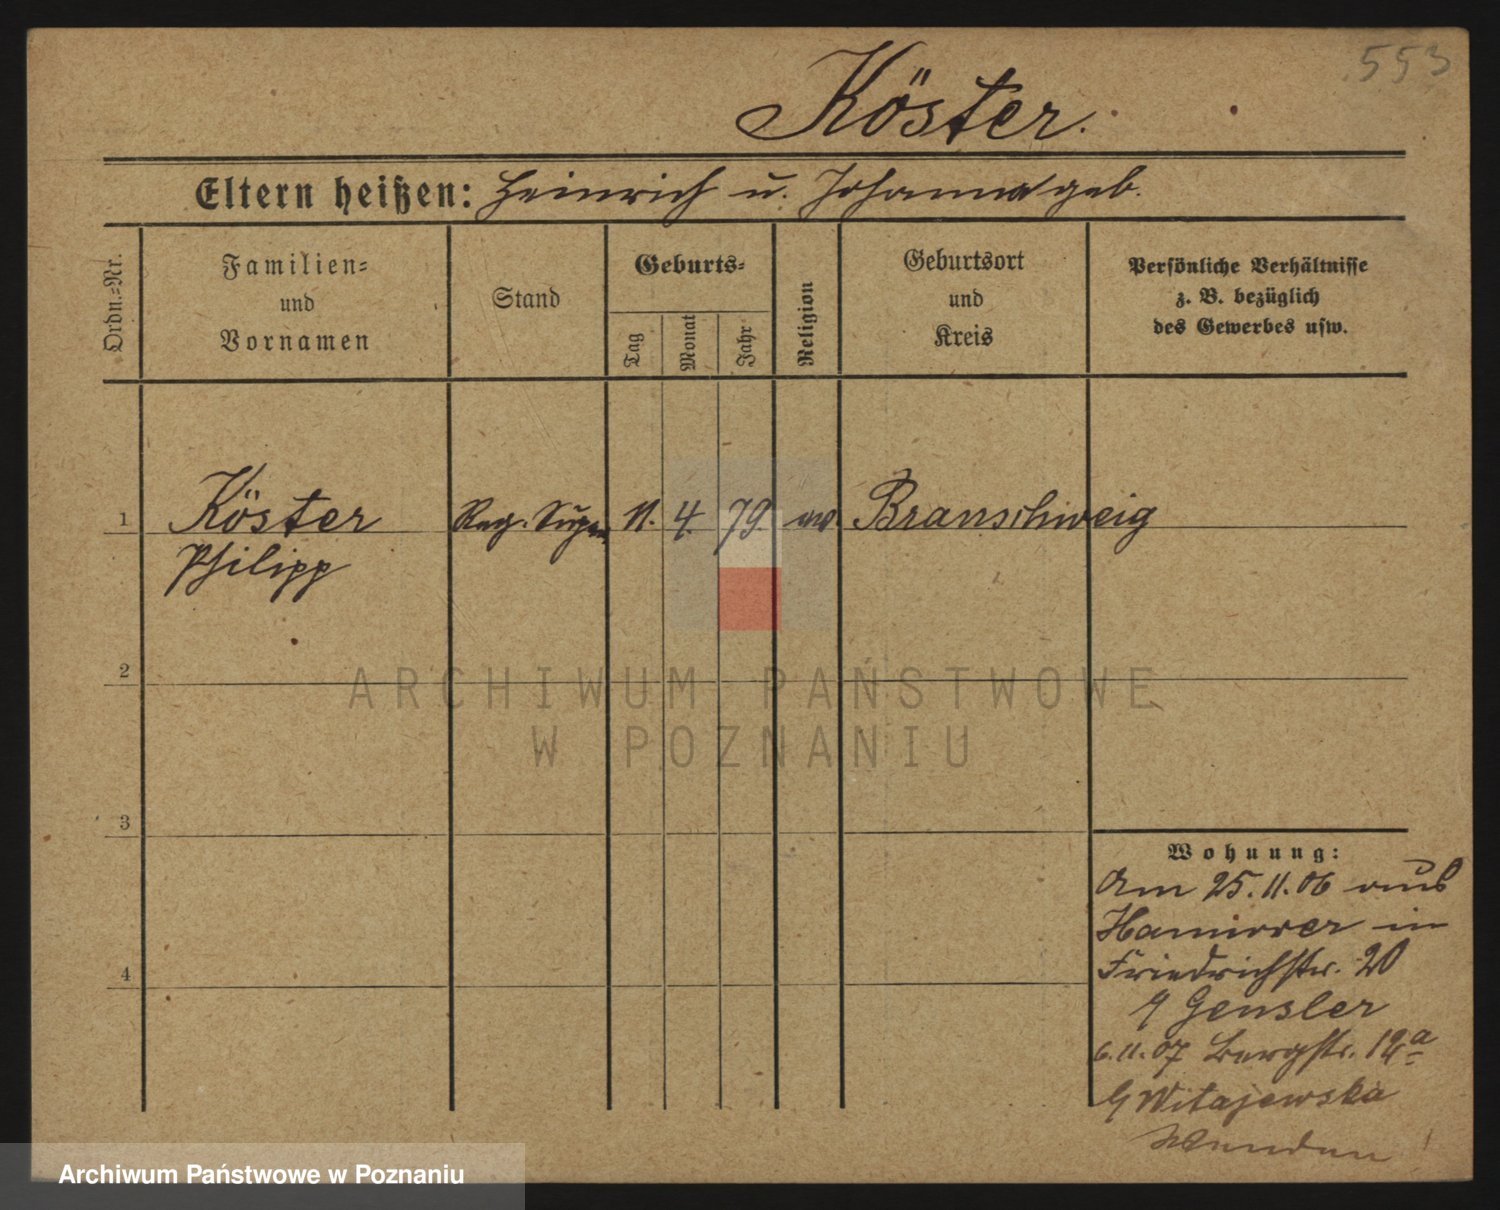 553
Köster.
Eltern heißen: Heinrich u. Johanna geb.
Ordn.-Nr.
Familien-
und
Vornamen
Stand
Geburts-
Tag
Monat
Jahr
Religion
Geburtsort
und
Kreis
Persönliche Verhältnisse
z. B. bezüglich
des Gewerbes usw.
1 Köster Reg. 11. 4. 79. Branschweig
Philipp
2
3
4
Wohnung:
Am 25.11.06 aus
Hannover in
Friedrichstr. 20
Gensler
6.11.07 Bergstr. 12a
Witajewska
ARCHIWUM PAŃSTWOWE
W POZNANIU
Archiwum Państwowe w Poznaniu